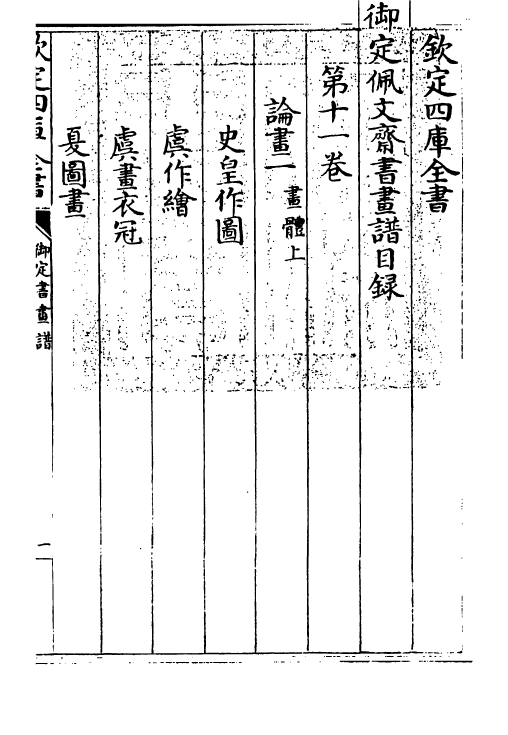 欽定四庫全書
御定佩文齋書畫譜目錄
第十一卷
論畫一 畫體上
史皇作圖
虞作繪
虞畫衣冠
夏圖畫
欽定四庫全書
御定書畫譜
一